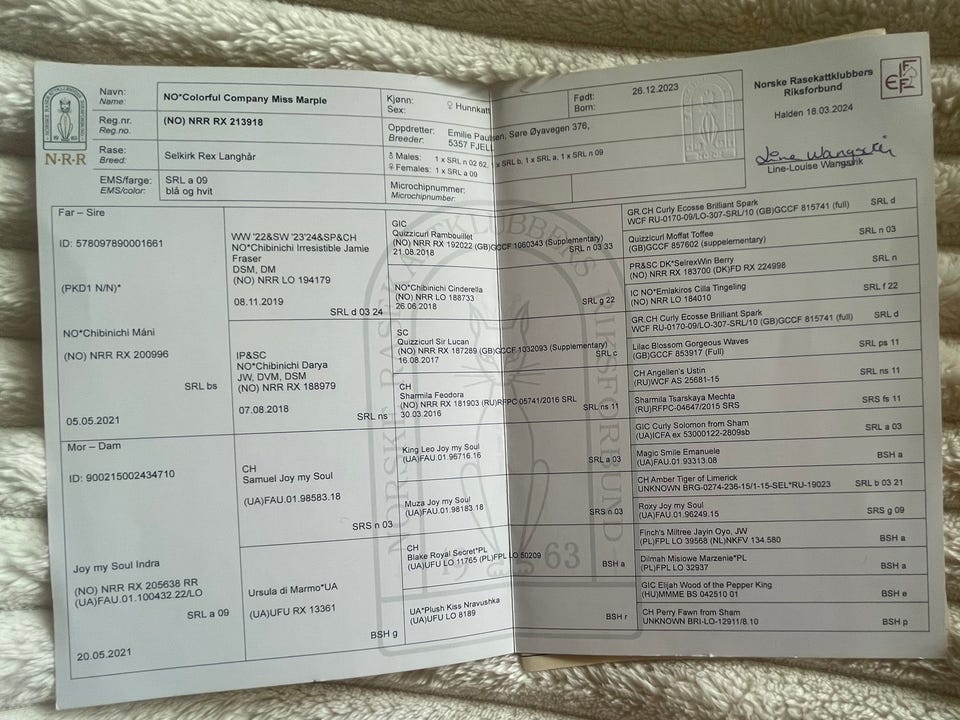 N-R-R
Navn:
Name:
NO*Colorful Company Miss Marple
Kjønn:
Sex:
♀ Hunnkatt
Født:
Born:
26.12.2023
Norske Rasekattklubbers
Riksforbund
FIFE
Halden 18.03.2024
Line-Louise Wangsvik
Reg.nr.
Reg.no.
(NO) NRR RX 213918
Oppdretter:
Breeder:
Emilie Paulsen, Søre Øyavegen 376,
5357 FJELL
Rase:
Breed:
Selkirk Rex Langhår
♂ Males: 1 x SRL n 02 62, 1 x SRL b, 1 x SRL a, 1 x SRL n 09
♀ Females: 1 x SRL a 09
EMS/farge:
EMS/color:
SRL a 09
blå og hvit
Microchipnummer:
Microchipnumber:
Far – Sire
ID: 578097890001661
(PKD1 N/N)*
NO*Chibinichi Máni
(NO) NRR RX 200996
SRL bs
05.05.2021
WW '22&SW '23'24&SP&CH
NO*Chibinichi Irresistible Jamie
Fraser
DSM, DM
(NO) NRR LO 194179
08.11.2019
SRL d 03 24
IP&SC
NO*Chibinichi Darya
JW, DVM, DSM
(NO) NRR RX 188979
07.08.2018
SRL ns
GIC
Quizzicurl Rambouillet
(NO) NRR RX 192022 (GB)GCCF 1060343 (Supplementary)
21.08.2018
SRL n 03 33
NO*Chibinichi Cinderella
(NO) NRR LO 188733
26.06.2018
SRL g 22
SC
Quizzicurl Sir Lucan
(NO) NRR RX 187289 (GB)GCCF 1032093 (Supplementary)
16.08.2017
SRL c
CH
Sharmila Feodora
(NO) NRR RX 181903 (RU)RFPC 05741/2016 SRL
30.03.2016
SRL ns 11
GR.CH Curly Ecosse Brilliant Spark
WCF RU-0170-09/LO-307-SRL/10 (GB)GCCF 815741 (full)
SRL d
Quizzicurl Moffat Toffee
(GB)GCCF 857602 (supplementary)
SRL n 03
PR&SC DK*SelrexWin Berry
(NO) NRR RX 183700 (DK)FD RX 224998
SRL n
IC NO*Emlakiros Cilla Tingeling
(NO) NRR LO 184010
SRL f 22
GR.CH Curly Ecosse Brilliant Spark
WCF RU-0170-09/LO-307-SRL/10 (GB)GCCF 815741 (full)
SRL d
Lilac Blossom Gorgeous Waves
(GB)GCCF 853917 (Full)
SRL ps 11
CH Angellen's Ustin
(RU)WCF AS 25681-15
SRL ns 11
Sharmila Tsarskaya Mechta
(RU)RFPC-04647/2015 SRS
SRS fs 11
Mor – Dam
ID: 900215002434710
Joy my Soul Indra
(NO) NRR RX 205638 RR
(UA)FAU.01.100432.22/LO
SRL a 09
20.05.2021
CH
Samuel Joy my Soul
(UA)FAU.01.98583.18
SRS n 03
Ursula di Marmo*UA
(UA)UFU RX 13361
BSH g
King Leo Joy my Soul
(UA)FAU.01.96716.16
SRL a 03
Muza Joy my Soul
(UA)FAU.01.98183.18
SRS n 03
CH
Blake Royal Secret*PL
(UA)UFU LO 11765 (PL)FPL LO 50209
BSH a
UA*Plush Kiss Nravushka
(UA)UFU LO 8189
BSH r
GIC Curly Solomon from Sham
(UA)ICFA ex 53000122-2809sb
SRL a 03
Magic Smile Emanuele
(UA)FAU.01.93313.08
BSH a
CH Amber Tiger of Limerick
UNKNOWN BRG-0274-236-15/1-15-SEL*RU-19023
SRL b 03 21
Roxy Joy my Soul
(UA)FAU.01.96249.15
SRS g 09
Finch's Miltree Jayin Oyo, JW
(PL)FPL LO 39568 (NL)NKFV 134.580
BSH a
Dilmah Misiowe Marzenie*PL
(PL)FPL LO 32937
BSH a
GIC Elijah Wood of the Pepper King
(HU)MMME BS 042510 01
BSH e
CH Perry Fawn from Sham
UNKNOWN BRI-LO-12911/8.10
BSH p
NORSKE RASEKATTKLUBBERS RIKSFORBUND
1963